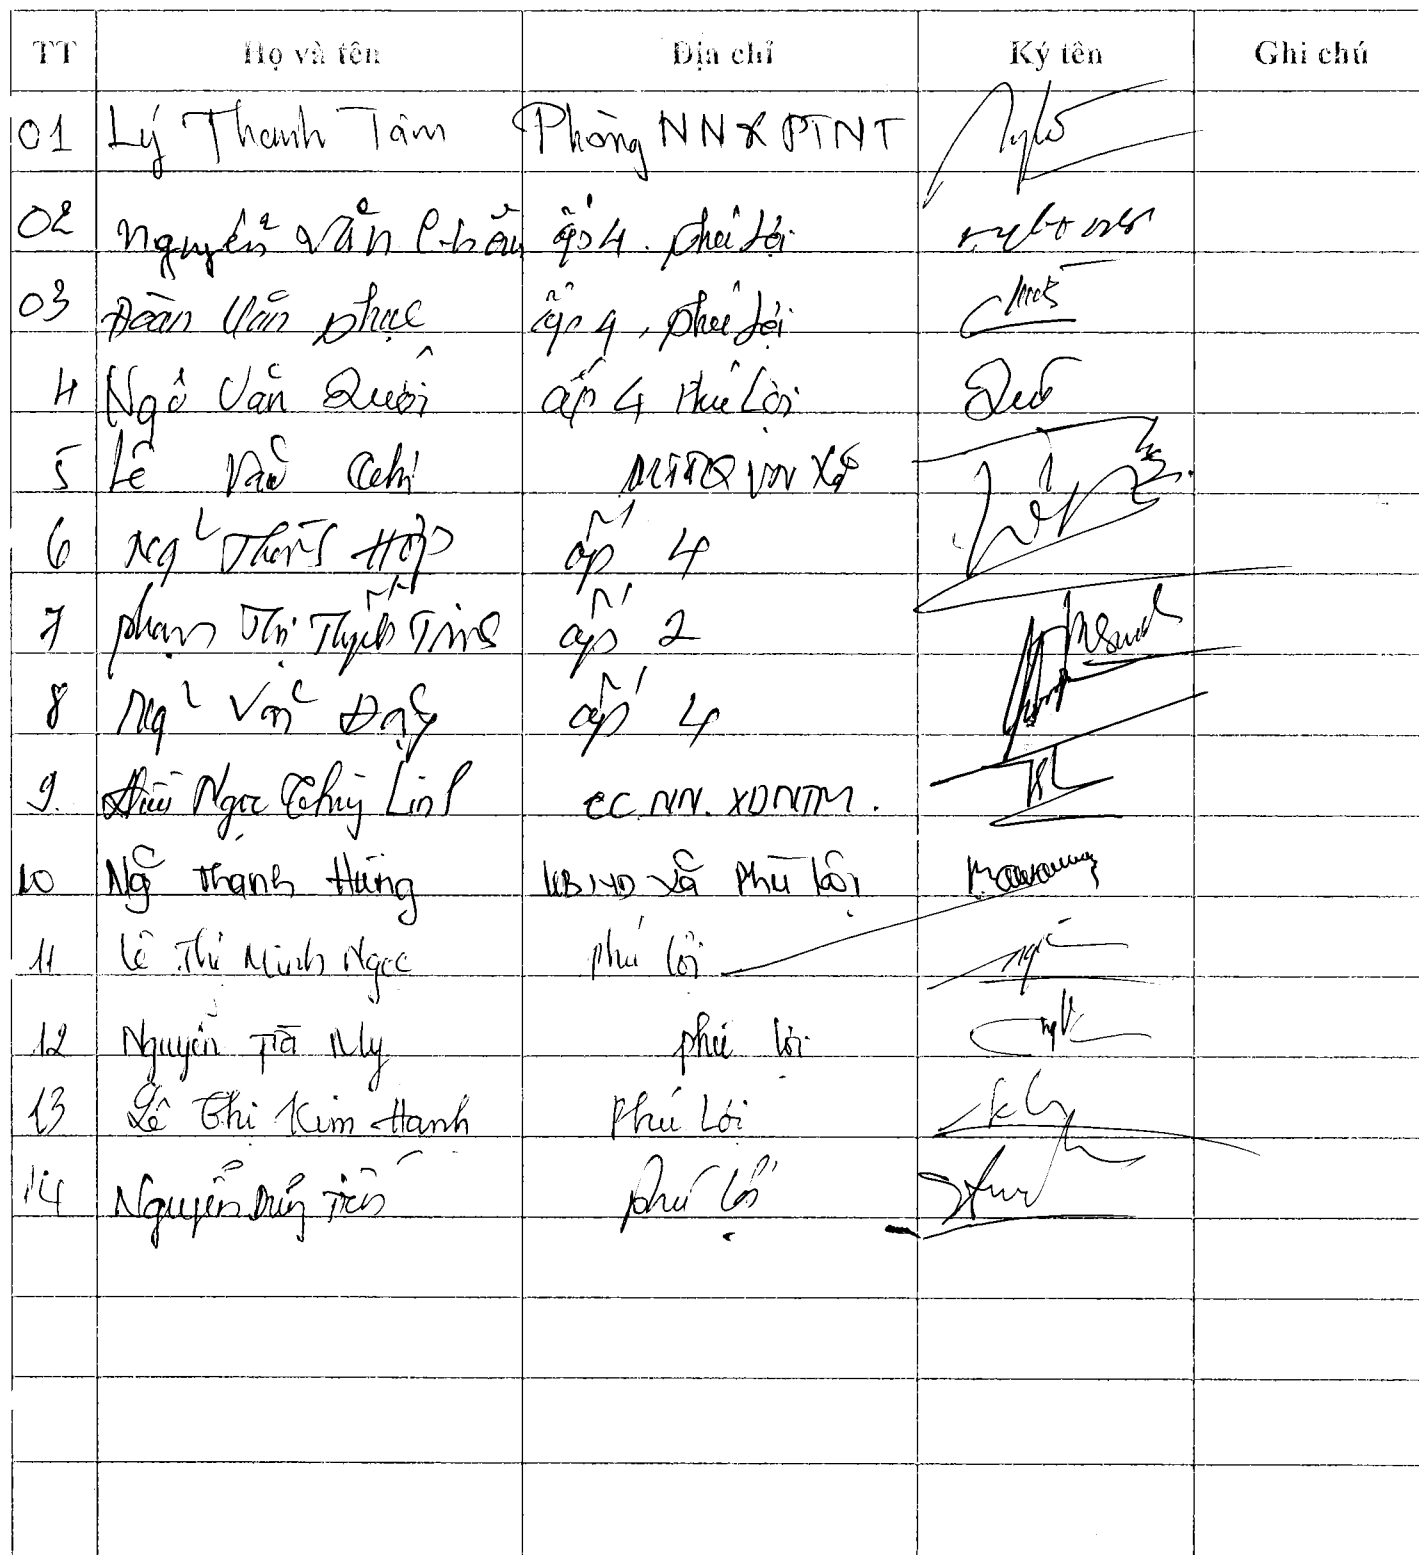 TT Họ và tên Địa chỉ Ký tên Ghi chú
01 Lý Thanh Tâm Phòng NN & PTNT
02 Nguyễn Văn ấp 4. Phú Lợi
03 Đoàn Văn Phục ấp 4, Phú Lợi
4 Ngô Văn Quới ấp 4 Phú Lợi
5 Lê Văn Chí MTTQ VN Xã
6 Ng Hợp ấp 4
7 Phạm Thị ấp 2
8 Ng Văn ấp 4
9. Ngọc Thùy Linh CC. NN. XDNTM.
10 Ng Thanh Hùng UBND xã Phú Lợi
11 Lê Thị Minh Ngọc Phú Lợi
12 Nguyễn Trà My Phú Lợi
13 Lê Thị Kim Hạnh Phú Lợi
14 Nguyễn Phú Lợi